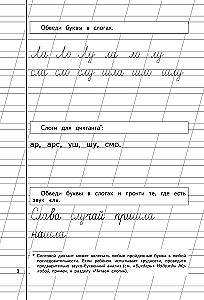 Обведи буквы в слогах.
Ла Ло Лу ла ло лу
сла сло слу шла шло шлу
Слоги для диктанта*:
ар, арс, уш, шу, смо.
Обведи буквы в слогах и прочти те, где есть
звук «л».
Слава случай пришла
нашла
* Слоговой диктант может включать любые пройденные буквы в любой
последовательности. Если ребёнок испытывает трудности, проведите
предварительно звуко-буквенный анализ (см. «Букварь» Надежды Жу-
ковой, примеч. к разделу